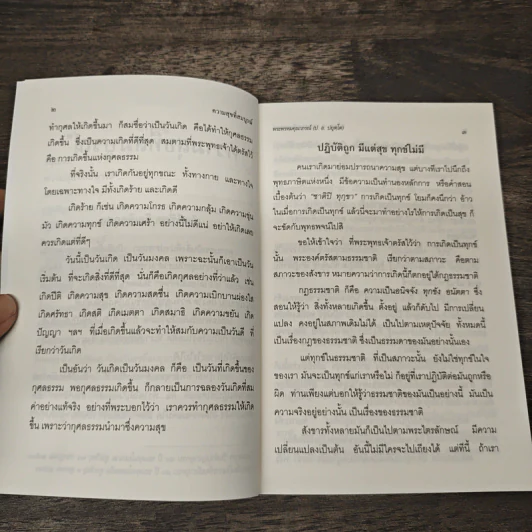 ๒
ความสุขที่สมบูรณ์
ทำกุศลให้เกิดขึ้นมา ก็สมชื่อว่าเป็นวันเกิด คือได้ทำให้กุศลธรรม
เกิดขึ้น ซึ่งเป็นความเกิดที่ดีที่สุด สมตามที่พระพุทธเจ้าได้ตรัสไว้
คือ การเกิดขึ้นแห่งกุศลธรรม
ที่จริงนั้น เราเกิดกันอยู่ทุกขณะ ทั้งทางกาย และทางใจ
โดยเฉพาะทางใจ มีทั้งเกิดร้าย และเกิดดี
เกิดร้าย ก็เช่น เกิดความโกรธ เกิดความกลุ้ม เกิดความขุ่น
มัว เกิดความทุกข์ เกิดความเศร้า อย่างนี้ไม่ดีแน่ อย่าให้เกิดเลย
ควรเกิดแต่ที่ดีๆ
วันนี้เป็นวันเกิด เป็นวันมงคล เพราะฉะนั้นก็เอาเป็นวัน
เริ่มต้น ที่จะเกิดสิ่งที่ดีที่สุด นั่นก็คือเกิดกุศลอย่างที่ว่าแล้ว เช่น
เกิดปีติ เกิดความสุข เกิดความสดชื่น เกิดความเบิกบานผ่องใส
เกิดศรัทธา เกิดสติ เกิดเมตตา เกิดสมาธิ เกิดความขยัน เกิด
ปัญญา ฯลฯ ที่เมื่อเกิดขึ้นแล้วจะทำให้สมกับความเป็นวันดี ที่
เรียกว่าวันเกิด
เป็นอันว่า วันเกิดเป็นวันมงคล ก็คือ เป็นวันที่เกิดขึ้นของ
กุศลธรรม พอกุศลธรรมเกิดขึ้น ก็กลายเป็นการฉลองวันเกิดที่สม
ค่าอย่างแท้จริง อย่างที่พระบอกไว้ว่า เราควรทำกุศลธรรมให้เกิด
ขึ้น เพราะว่ากุศลธรรมนำมาซึ่งความสุข
พระพรหมคุณาภรณ์ (ป. อ. ปยุตฺโต)
๓
ปฏิบัติถูก มีแต่สุข ทุกข์ไม่มี
คนเราเกิดมาย่อมปรารถนาความสุข แต่บางทีเราไปนึกถึง
พุทธภาษิตแห่งหนึ่ง มีข้อความเป็นทำนองหลักการ หรือคำสอน
เบื้องต้นว่า “ชาติปิ ทุกฺขา” การเกิดเป็นทุกข์ โยมก็คงนึกว่า อ้าว
ในเมื่อการเกิดเป็นทุกข์ แล้วนี่จะมาทำอย่างไรให้การเกิดเป็นสุข ก็
จะขัดกับพุทธพจน์ไปสิ
ขอให้เข้าใจว่า ที่พระพุทธเจ้าตรัสไว้ว่า การเกิดเป็นทุกข์
นั้น พระองค์ตรัสตามธรรมชาติ เรียกว่าตามสภาวะ คือตาม
สภาวะของสังขาร หมายความว่าการเกิดนี้ก็ตกอยู่ใต้กฎธรรมชาติ
กฎธรรมชาติ ก็คือ ความเป็นอนิจจัง ทุกขัง อนัตตา ซึ่ง
สอนให้รู้ว่า สิ่งทั้งหลายเกิดขึ้น ตั้งอยู่ แล้วก็ดับไป มีการเปลี่ยน
แปลง คงอยู่ในสภาพเดิมไม่ได้ เป็นไปตามเหตุปัจจัย ทั้งหมดนี้
เป็นเรื่องกฎของธรรมชาติ ซึ่งเป็นธรรมดาของมันอย่างนั้นเอง
แต่ทุกข์ในธรรมชาติ ที่เป็นสภาวะนั้น ยังไม่ใช่ทุกข์ในใจ
ของเรา มันจะเป็นทุกข์แก่เราหรือไม่ ก็อยู่ที่เราปฏิบัติต่อมันถูกหรือ
ผิด ท่านเพียงแต่บอกให้รู้ว่าธรรมชาติของมันเป็นอย่างนี้ มันเป็น
ความจริงอยู่อย่างนั้น เป็นเรื่องของธรรมชาติ
สังขารทั้งหลายมันก็เป็นไปตามพระไตรลักษณ์ มีความ
เปลี่ยนแปลงเป็นต้น อันนี้ไม่มีใครจะไปเถียงได้ แต่ทีนี้ ถ้าเรา